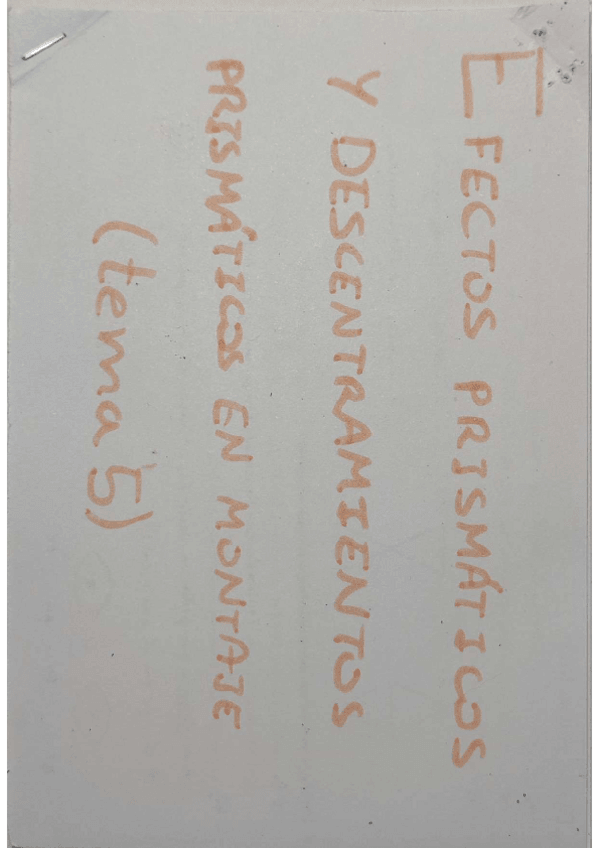 EFECTOS PRISMÁTICOS
Y DESCENTRAMIENTOS
PRISMÁTICOS EN MONTAJE
(tema 5)